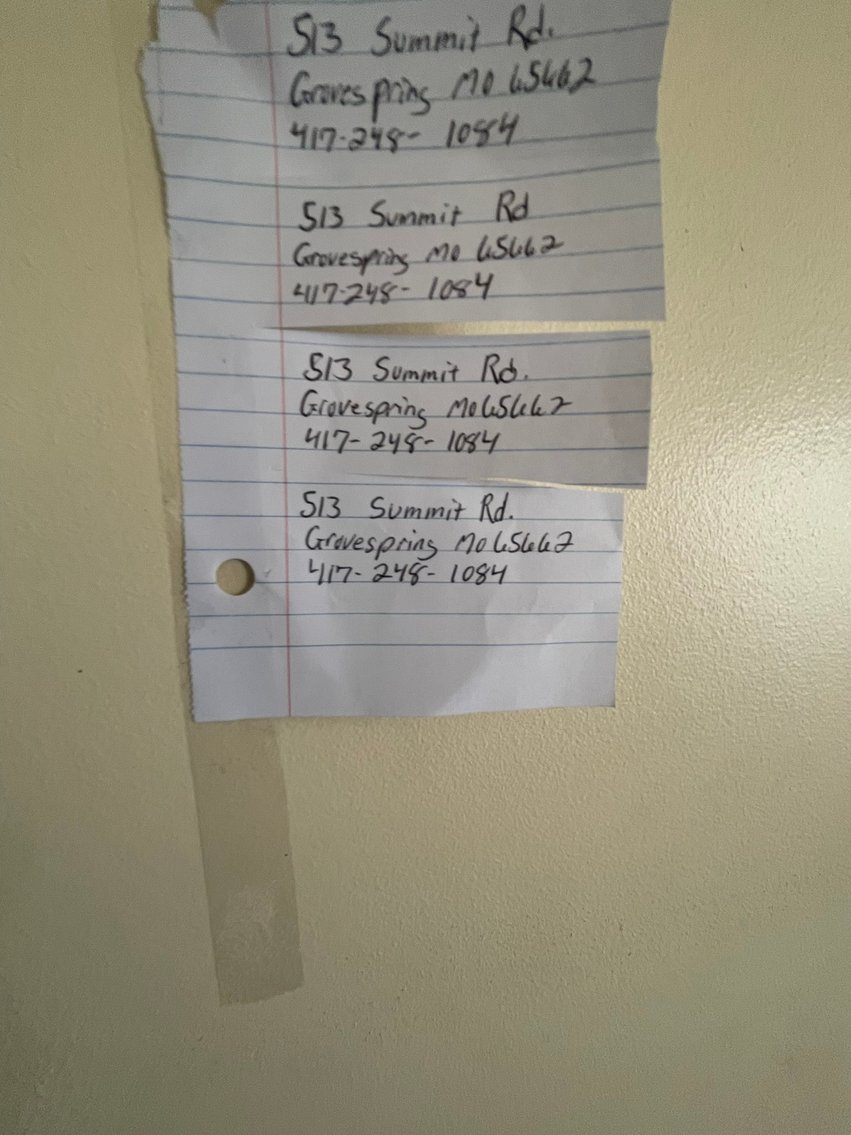 513 Summit Rd.
Grovespring MO 65662
417-248- 1084
513 Summit Rd
Grovespring MO 65662
417-248- 1084
513 Summit Rd.
Grovespring MO 65662
417- 248- 1084
513 Summit Rd.
Grovespring MO 65662
417- 248- 1084